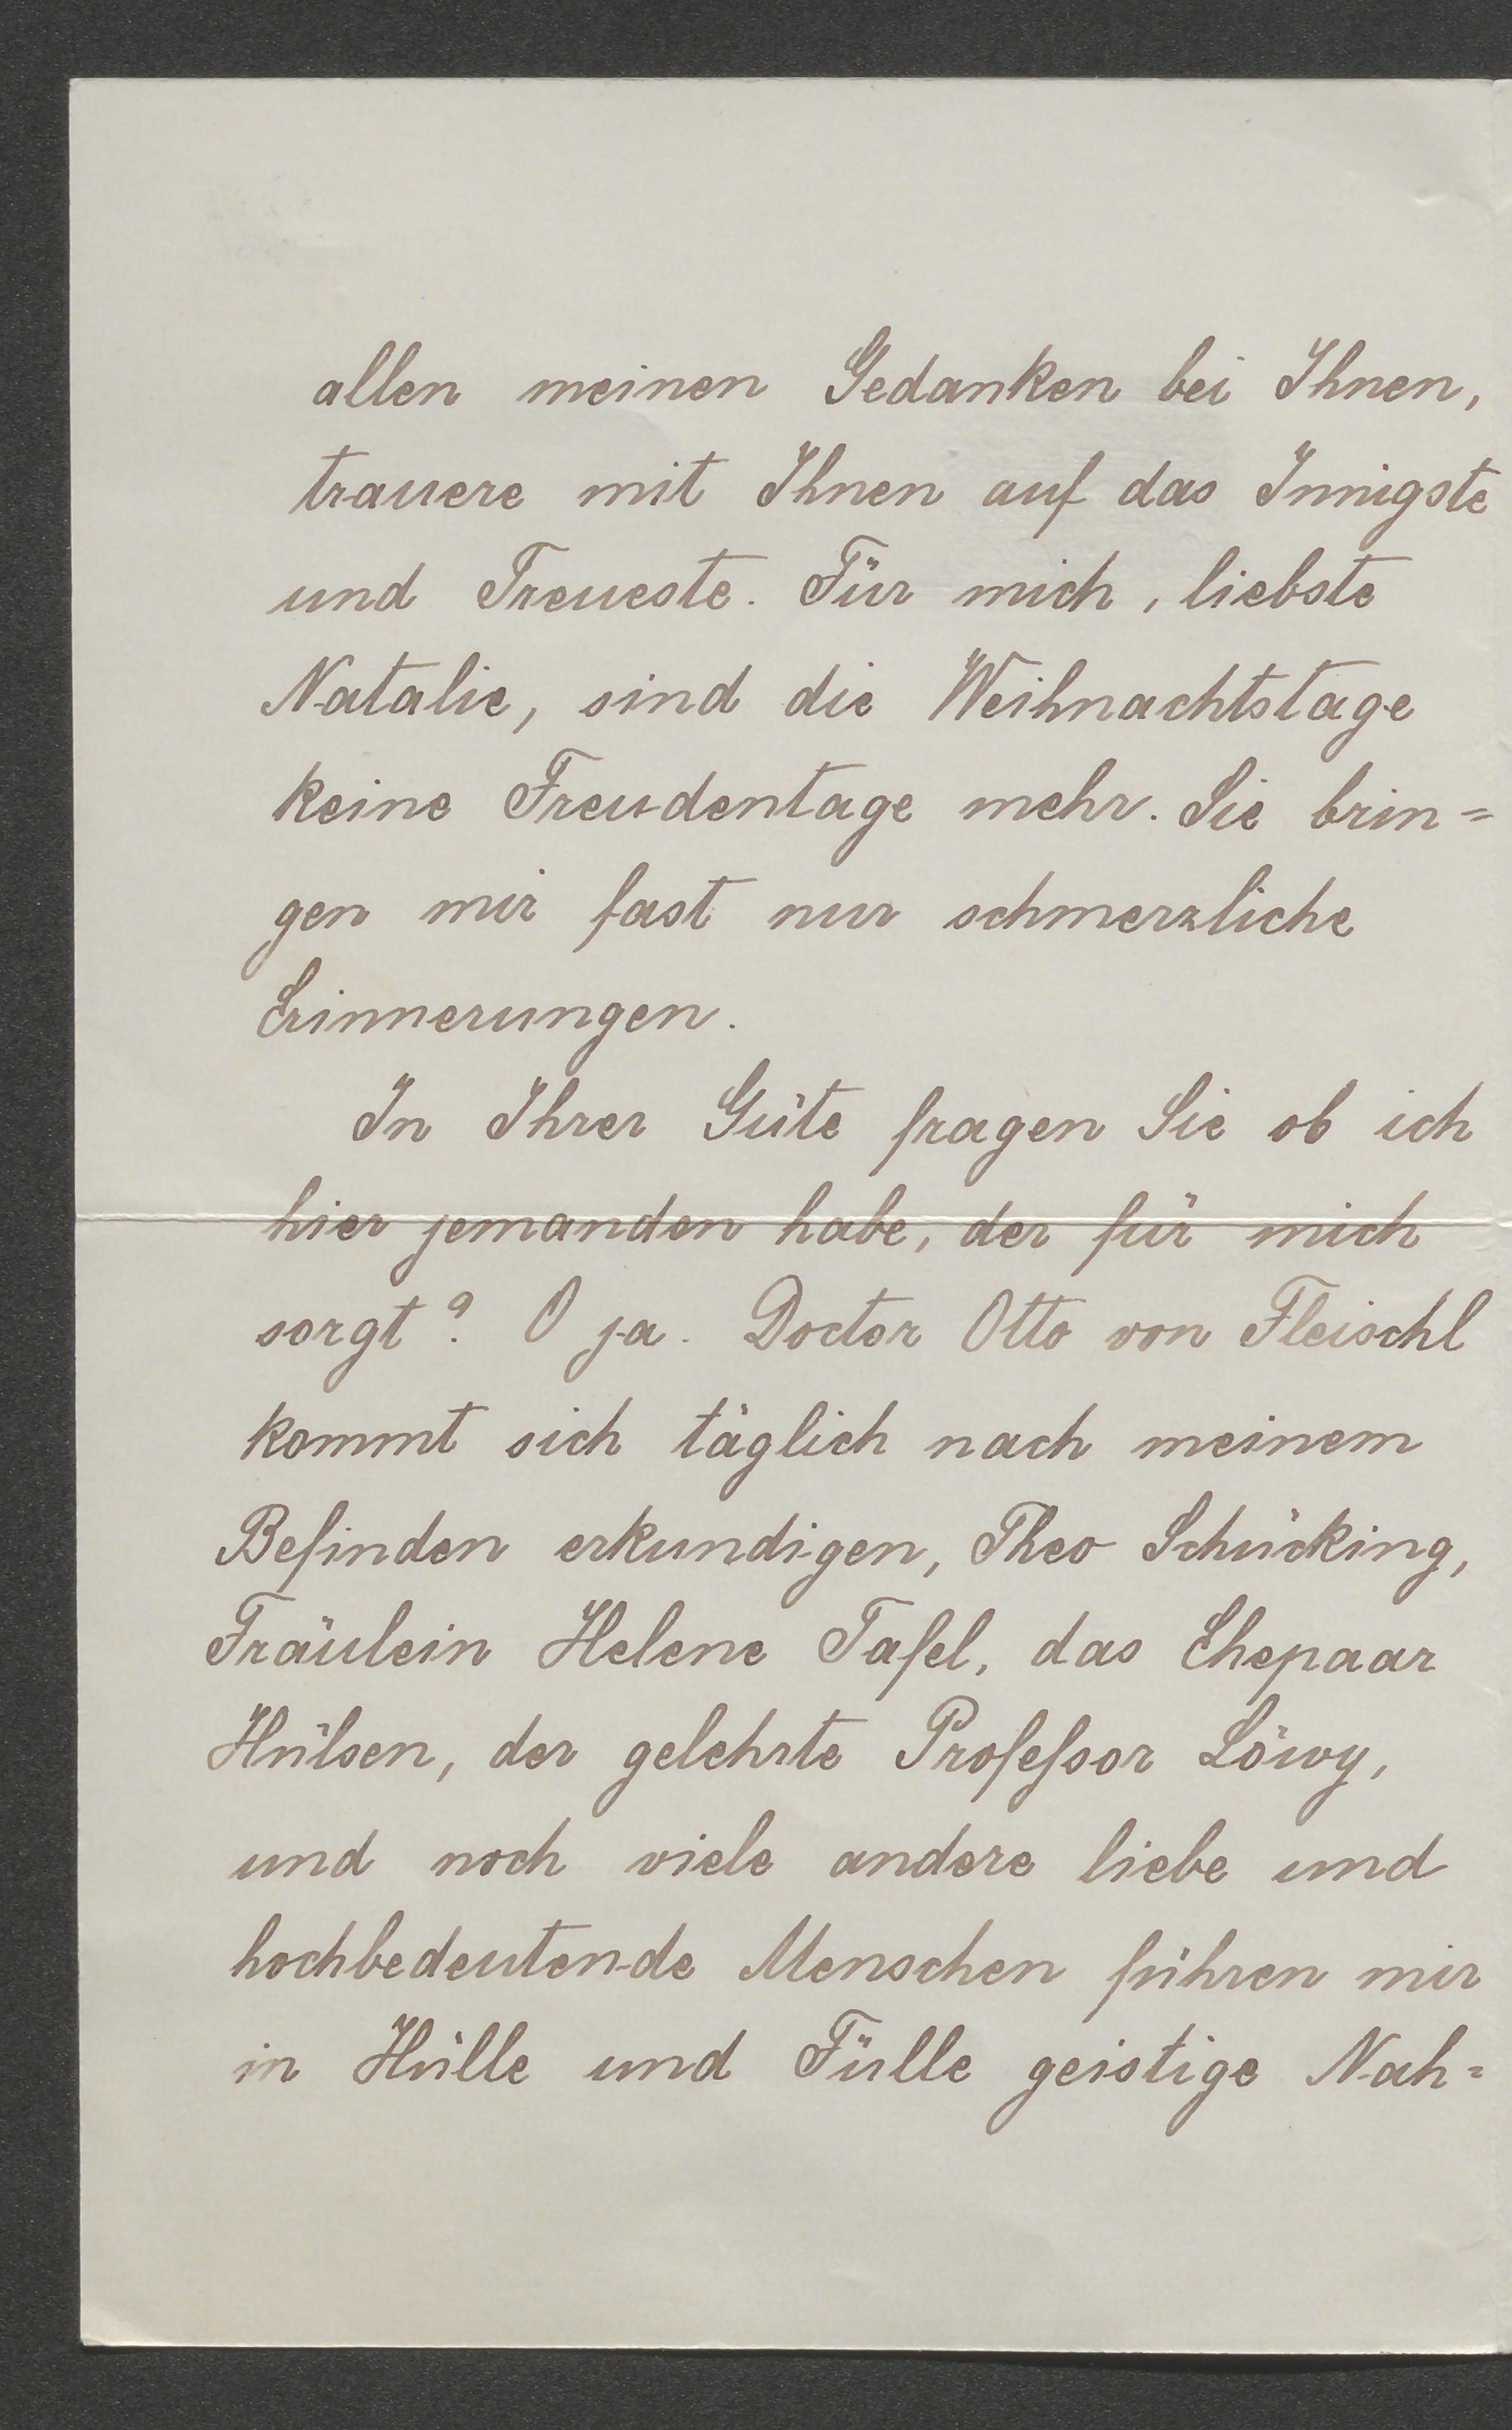 allen meinen Gedanken bei Ihnen,
trauere mit Ihnen auf das Innigste
und Treueste. Für mich, liebste
Natalie, sind die Weihnachtstage
keine Freudentage mehr. Sie brin=
gen mir fast nur schmerzliche
Erinnerungen.
In Ihrer Güte fragen Sie ob ich
hier jemanden habe, der für mich
sorgt? O ja. Doctor Otto von Fleischl
kommt sich täglich nach meinem
Befinden erkundigen, Theo Schücking,
Fräulein Helene Tafel, das Ehepaar
Hülsen, der gelehrte Profeſsor Löwy,
und noch viele andere liebe und
hochbedeutende Menschen führen mir
in Hülle und Fülle geistige Nah=